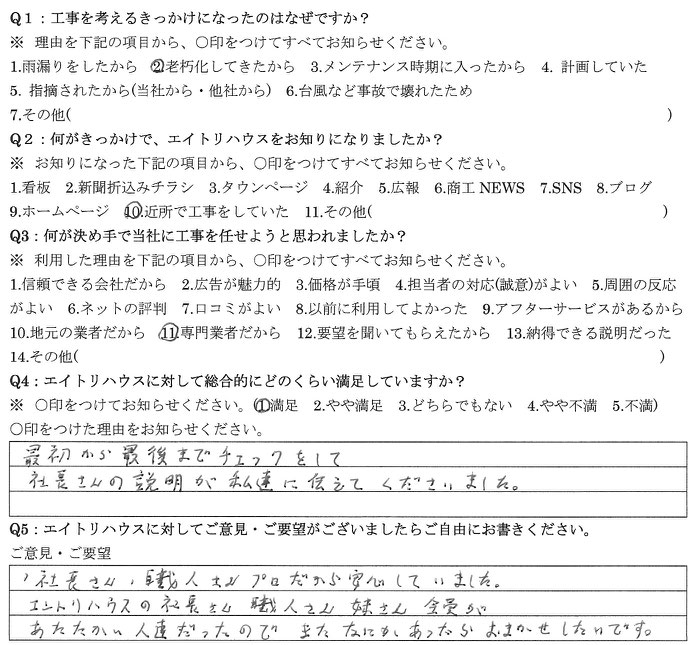 Q1：工事を考えるきっかけになったのはなぜですか？
※ 理由を下記の項目から、〇印をつけてすべてお知らせください。
1.雨漏りをしたから ②老朽化してきたから 3.メンテナンス時期に入ったから 4. 計画していた
5. 指摘されたから(当社から・他社から) 6.台風など事故で壊れたため
7.その他( )
Q2：何がきっかけで、エイトリハウスをお知りになりましたか？
※ お知りになった下記の項目から、〇印をつけてすべてお知らせください。
1.看板 2.新聞折込みチラシ 3.タウンページ 4.紹介 5.広報 6.商工 NEWS 7.SNS 8.ブログ
9.ホームページ ⑩近所で工事をしていた 11.その他( )
Q3：何が決め手で当社に工事を任せようと思われましたか？
※ 利用した理由を下記の項目から、〇印をつけてすべてお知らせください。
1.信頼できる会社だから 2.広告が魅力的 3.価格が手頃 4.担当者の対応(誠意)がよい 5.周囲の反応
がよい 6.ネットの評判 7.口コミがよい 8.以前に利用してよかった 9.アフターサービスがあるから
10.地元の業者だから ⑪専門業者だから 12.要望を聞いてもらえたから 13.納得できる説明だった
14.その他( )
Q4：エイトリハウスに対して総合的にどのくらい満足していますか？
※ 〇印をつけてお知らせください。(①満足 2.やや満足 3.どちらでもない 4.やや不満 5.不満)
〇印をつけた理由をお知らせください。
最初から最後までチェックをして
社長さんの説明が私達に伝えてくださいました。
Q5：エイトリハウスに対してご意見・ご要望がございましたらご自由にお書きください。
ご意見・ご要望
社長さん、職人さん プロだから安心していました。
エントリハウスの社長さん 職人さん 妹さん 全員が
あたたかい人達だったので またなにかあったらおまかせしたいです。